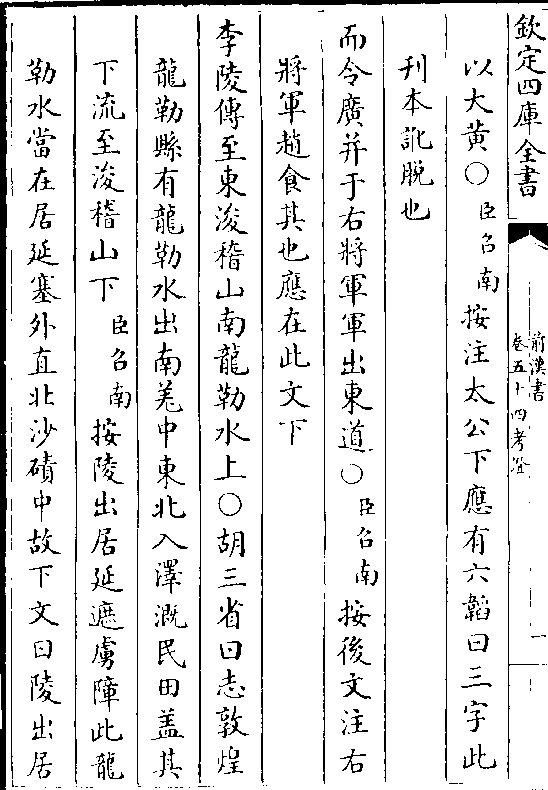 欽定四庫全書
前漢書
卷五十四考證
一
以大黃○臣召南按注太公下應有六韜曰三字此
刊本訛脫也
而令廣并于右將軍軍出東道○臣召南按後文注右
將軍趙食其也應在此文下
李陵傳至東浚稽山南龍勒水上○胡三省曰志敦煌
龍勒縣有龍勒水出南羌中東北入澤溉民田蓋其
下流至浚稽山下臣召南按陵出居延遮虜障此龍
勒水當在居延塞外直北沙磧中故下文曰陵出居